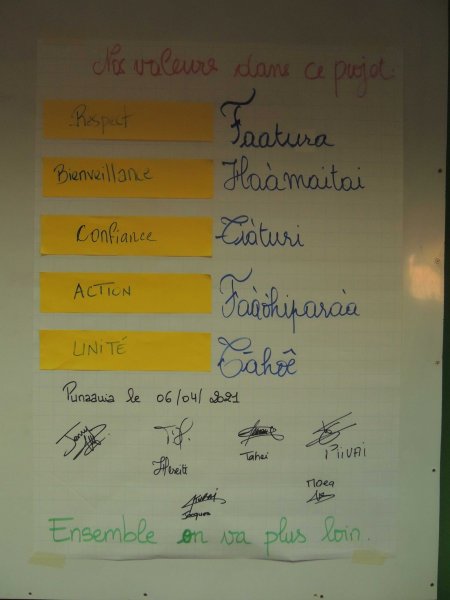 Nos valeurs dans ce projet.
Respect Faatura
Bienveillance Haàmaitai
Confiance Tiàturi
ACTION Faàòhiparaàa
UNITÉ Tāhoê
Punaauia le 06/04/2021
Tahei PIIVAI
Moea
Jacques
Ensemble on va plus loin.